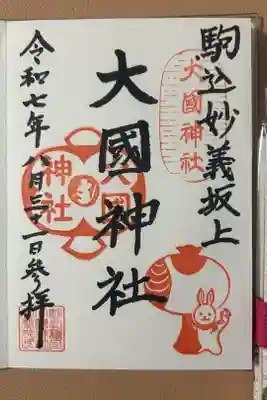 駒込妙義坂上
大國神社
大國神社
大國神社
令和七年八月三十一日參拝